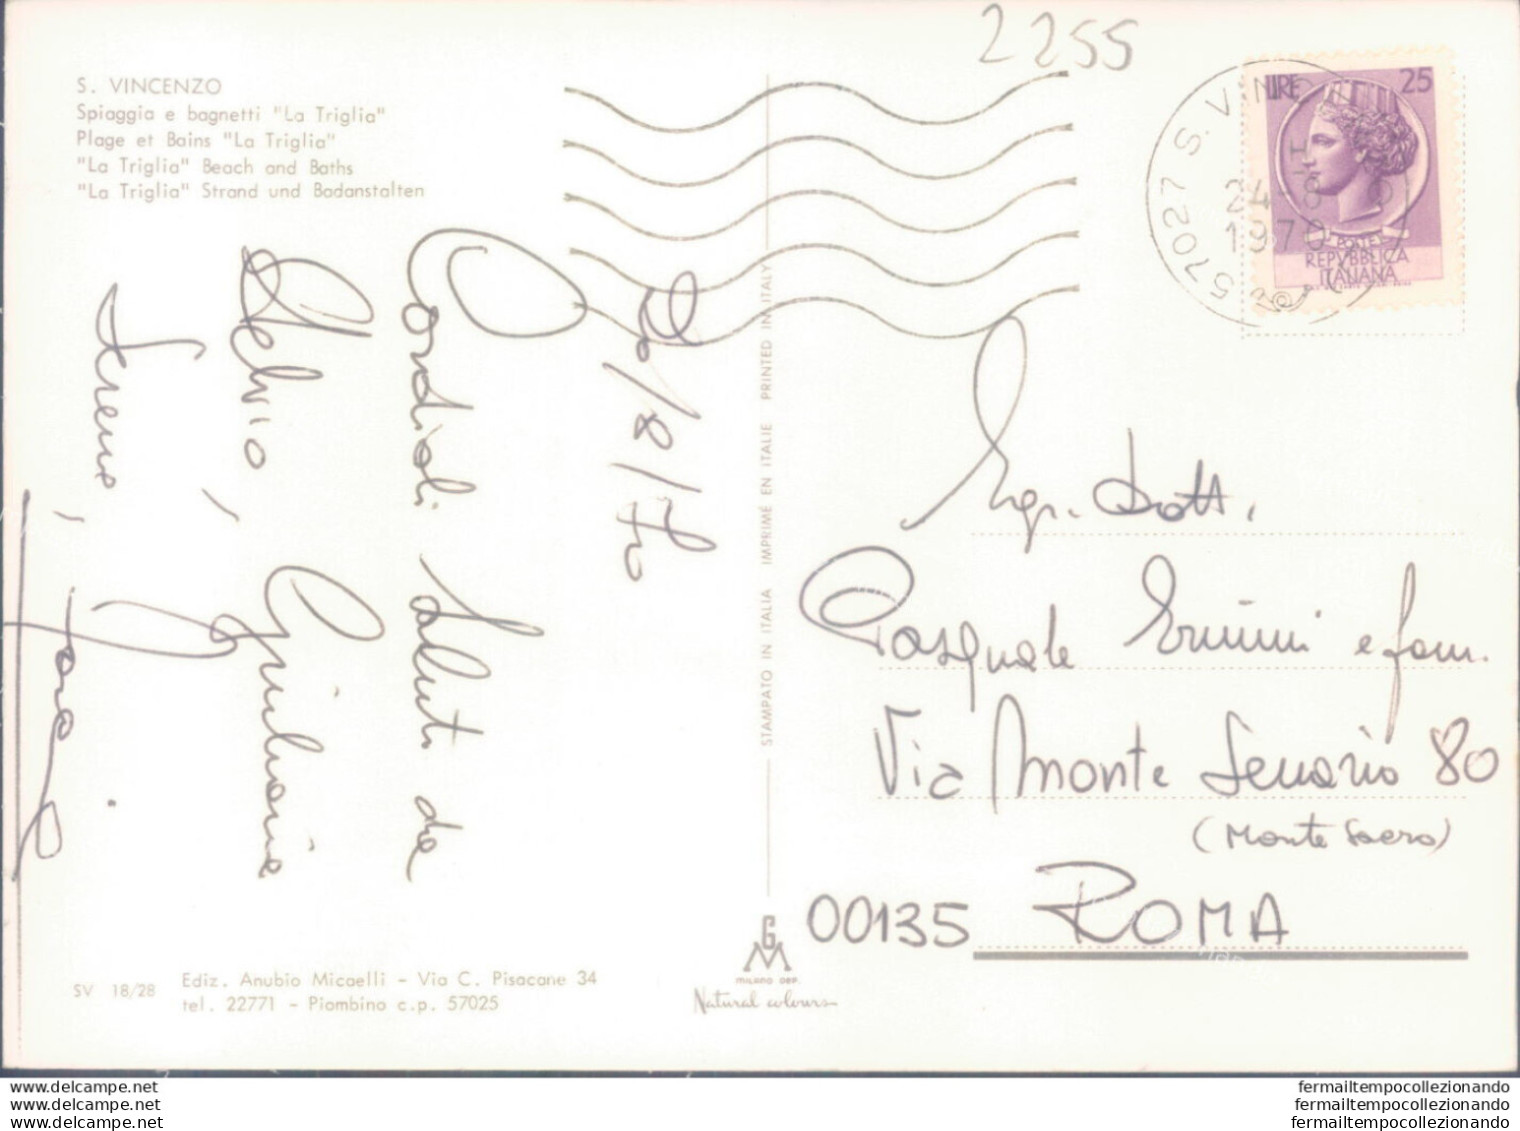 2255
S. VINCENZO
Spiaggia e bagnetti "La Triglia"
Plage et Bains "La Triglia"
"La Triglia" Beach and Baths
"La Triglia" Strand und Badanstalten
57027 S. VINC
24-8
1970
LIRE 25
REPVBBLICA
ITALIANA
20/8/70
Cordiali Saluti da
Delvio, Giuliana
STAMPATO IN ITALIA IMPRIME EN ITALIE PRINTED IN ITALY
Sigr. Dott.
Pasquale Erminni e fam.
Via Monte Senario 80
(Monte Sacro)
00135 ROMA
SV 18/28
Ediz. Anubio Micaelli - Via C. Pisacane 34
tel. 22771 - Piombino c.p. 57025
GM
MILANO DEP.
Natural colours
www.delcampe.net
www.delcampe.net
www.delcampe.net
fermailtempocollezionando
fermailtempocollezionando
fermailtempocollezionando